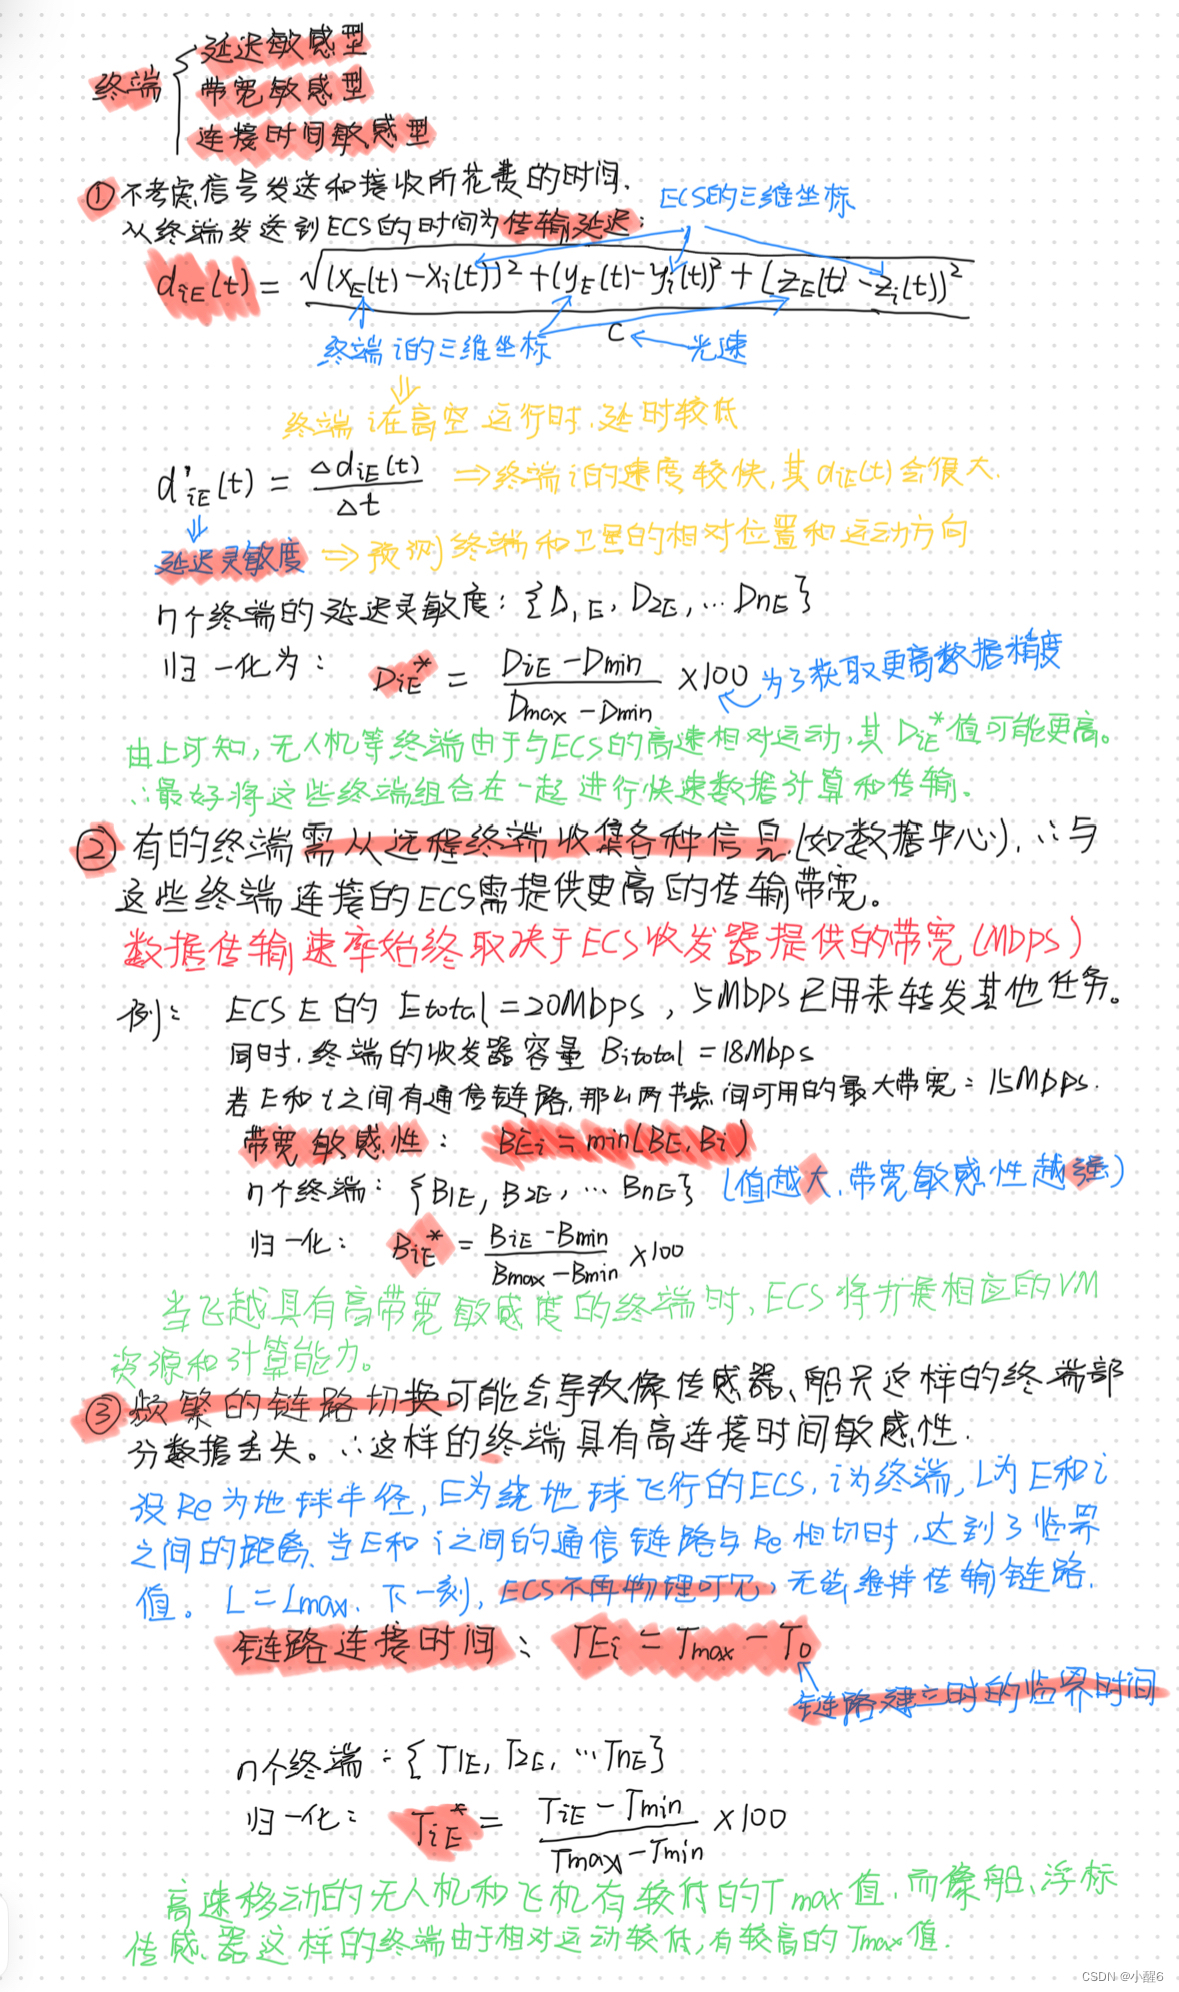 终端
延迟敏感型
带宽敏感型
连接时间敏感型
① 不考虑信号发送和接收所花费的时间.
ECS的三维坐标
从终端发送到ECS的时间为传输延迟:
diE(t) = √(xE(t)-xi(t))² + (yE(t)-yi(t))² + (zE(t)-zi(t))²
C
终端i的三维坐标
光速
终端i在高空运行时,延时较低
d'iE(t) = ΔdiE(t) / Δt ⇒终端i的速度较快,其diE(t)会很大.
延迟灵敏度 ⇒ 预测终端和卫星的相对位置和运动方向
n个终端的延迟灵敏度: {D1E, D2E, ... DnE}
归一化为: DiE* = (DiE - Dmin) / (Dmax - Dmin) ×100 为了获取更高数据精度
由上可知,无人机等终端由于与ECS的高速相对运动,其DiE*值可能更高。
∴最好将这些终端组合在一起进行快速数据计算和传输.
② 有的终端需从远程终端收集各种信息(如数据中心),∴与
这些终端连接的ECS需提供更高的传输带宽。
数据传输速率始终取决于ECS收发器提供的带宽(Mbps)
例: ECS E的 Etotal = 20Mbps, 5Mbps已用来转发其他任务。
同时,终端的收发器容量 Bitotal = 18Mbps
若E和i之间有通信链路,那么两节点间可用的最大带宽=15Mbps.
带宽敏感性: BEi = min(BE, Bi)
n个终端: {B1E, B2E, ... BnE} (值越大,带宽敏感性越强)
归一化: BiE* = (BiE - Bmin) / (Bmax - Bmin) ×100
当飞越具有高带宽敏感度的终端时,ECS将扩展相应的VM
资源和计算能力。
③ 频繁的链路切换可能会导致像传感器、船只这样的终端部
分数据丢失。∴这样的终端具有高连接时间敏感性.
设Re为地球半径,E为绕地球飞行的ECS,i为终端,L为E和i
之间的距离,当E和i之间的通信链路与Re相切时,达到了临界
值。L=Lmax. 下一刻,ECS不再物理可见,无法维持传输链路.
链路连接时间: TEi = Tmax - T0
链路建立时的临界时间
n个终端: {T1E, T2E, ... TnE}
归一化: TiE* = (TiE - Tmin) / (Tmax - Tmin) ×100
高速移动的无人机和飞机有较低的Tmax值,而像船、浮标
传感器这样的终端由于相对运动较低,有较高的Tmax值.
CSDN @小醒6